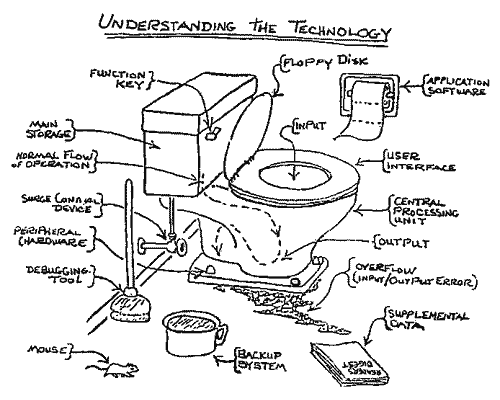 UNDERSTANDING THE TECHNOLOGY
FUNCTION
KEY
FLOPPY DISK
APPLICATION
SOFTWARE
MAIN
STORAGE
INPUT
NORMAL FLOW
OF OPERATION
USER
INTERFACE
SURGE CONTROL
DEVICE
CENTRAL
PROCESSING
UNIT
PERIPHERAL
HARDWARE
OUTPUT
DEBUGGING
TOOL
OVERFLOW
(INPUT/OUTPUT ERROR)
SUPPLEMENTAL
DATA
MOUSE
BACKUP
SYSTEM
READERS
DIGEST